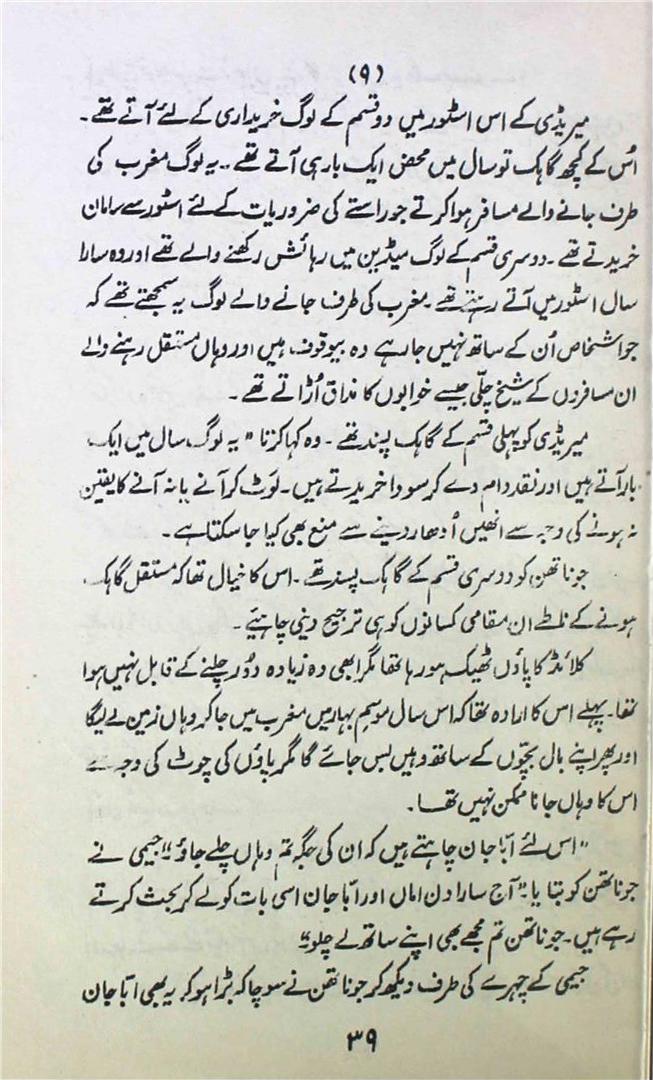 (۹)
میریڈی کے اس اسٹور میں دو قسم کے لوگ خریداری کے لئے آتے تھے۔
اُس کے کچھ گاہک تو سال میں محض ایک بار ہی آتے تھے۔ یہ لوگ مغرب کی
طرف جانے والے مسافر ہوا کرتے جو راستے کی ضروریات کے لئے اسٹور سے سامان
خریدتے تھے۔ دوسری قسم کے لوگ میڈیبن میں رہائش رکھنے والے تھے اور وہ سارا
سال اسٹور میں آتے رہتے تھے۔ مغرب کی طرف جانے والے لوگ یہ سمجھتے تھے کہ
جو اشخاص اُن کے ساتھ نہیں جا رہے وہ بیوقوف ہیں اور وہاں مستقل رہنے والے
ان مسافروں کے شیخ چلّی جیسے خوابوں کا مذاق اُڑاتے تھے۔
میریڈی کو پہلی قسم کے گاہک پسند تھے۔ وہ کہا کرتا "یہ لوگ سال میں ایک
بار آتے ہیں اور نقد دام دے کر سودا خریدتے ہیں۔ لَوٹ کر آنے یا نہ آنے کا یقین
نہ ہونے کی وجہ سے انھیں اُدھار دینے سے منع بھی کیا جا سکتا ہے۔
جوناتھن کو دوسری قسم کے گاہک پسند تھے۔ اس کا خیال تھا کہ مستقل گاہک
ہونے کے ناطے ان مقامی کسانوں کو ہی ترجیح دینی چاہیئے۔
کلائڈ کا پاؤں ٹھیک ہو رہا تھا مگر ابھی وہ زیادہ دُور چلنے کے قابل نہیں ہوا
تھا۔ پہلے اس کا ارادہ تھا کہ اس سال موسم بہار میں مغرب میں جا کر وہاں زمین لے لیگا
اور پھر اپنے بال بچّوں کے ساتھ وہیں بس جائے گا مگر پاؤں کی چوٹ کی وجہ سے
اس کا وہاں جانا ممکن نہیں تھا۔
"اس لئے ابّا جان چاہتے ہیں کہ ان کی جگہ تم وہاں چلے جاؤ" جیمی نے
جوناتھن کو بتایا "آج سارا دن اماں اور ابّا جان اسی بات کو لے کر بحث کرتے
رہے ہیں۔ جوناتھن تم مجھے بھی اپنے ساتھ لے چلو"
جیمی کے چہرے کی طرف دیکھ کر جوناتھن نے سوچا کہ بڑا ہو کر یہ بھی ابّا جان
۳۹